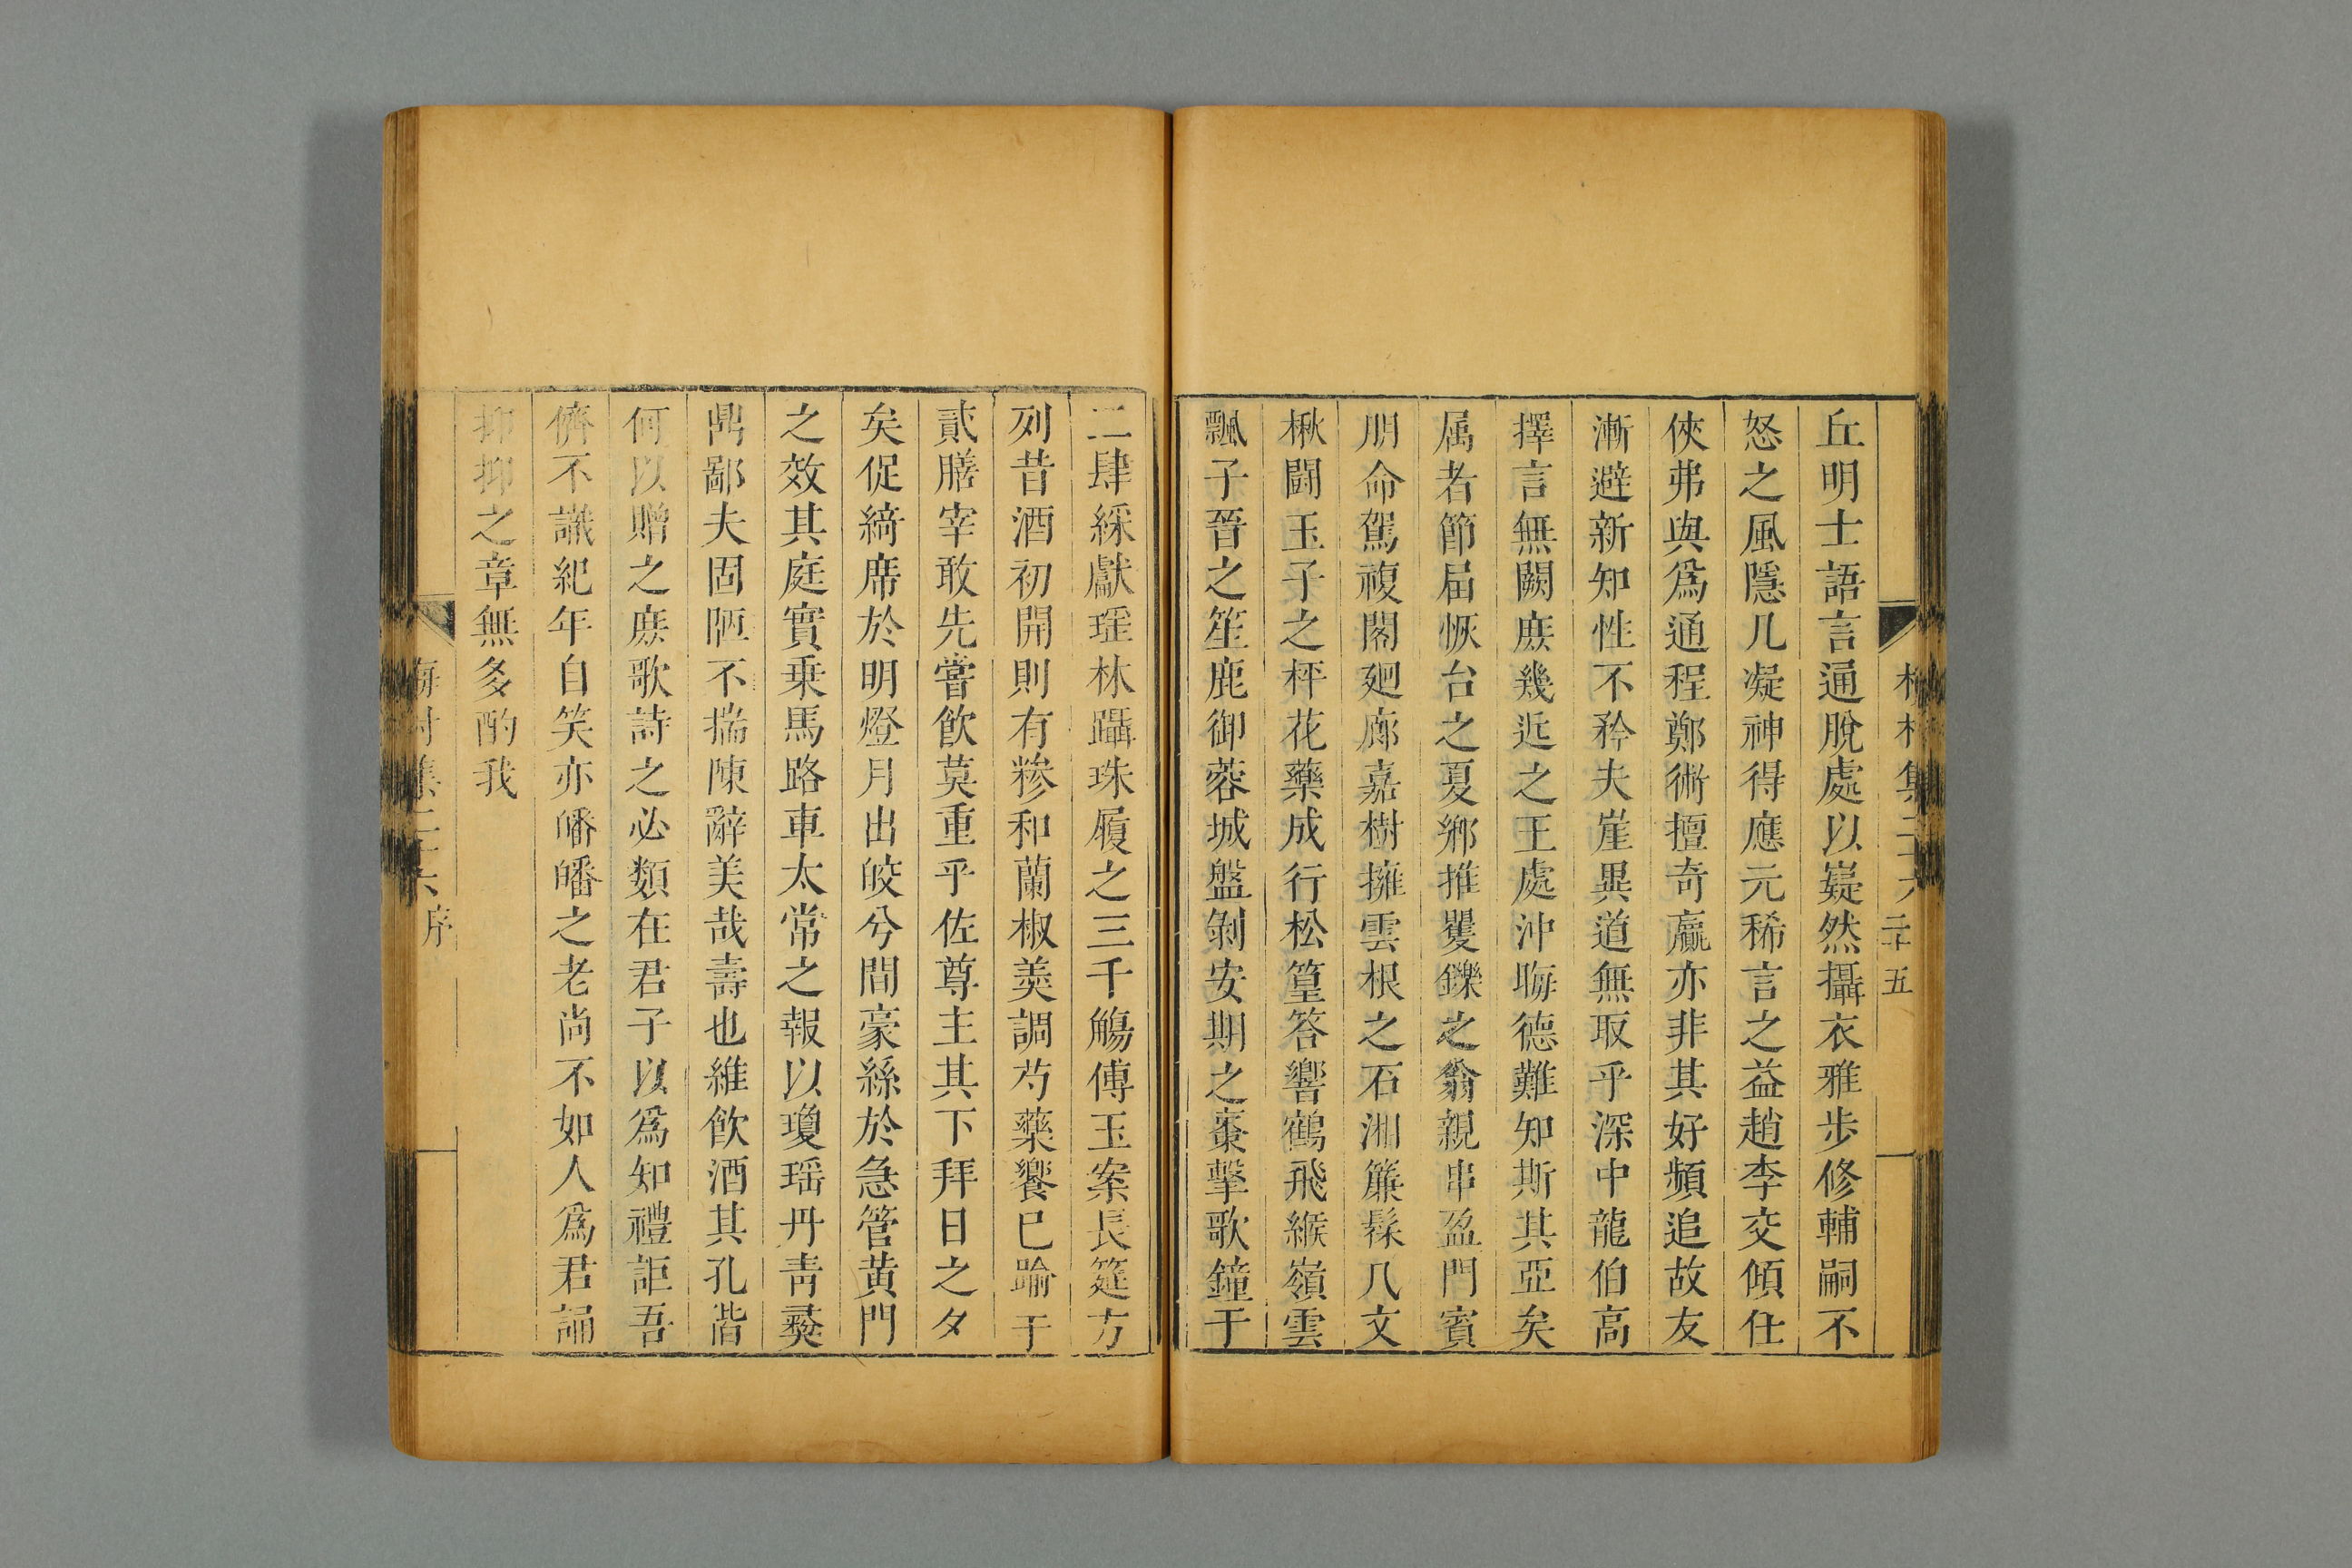 丘明士語言通脫處以嶷然攝衣雅步修輔嗣不
怒之風隱几凝神得應元稀言之益趙李交傾任
俠弗與爲通程鄭術擅奇贏亦非其好頻追故友
漸避新知性不矜夫崖異道無取乎深中龍伯高
擇言無闕庶幾近之王處沖晦德難知斯其亞矣
属者節届恢台之夏鄉推矍鑠之翁親串盈門賓
朋命駕複閣廻廊嘉樹擁雲根之石湘簾髹几文
楸鬭玉子之枰花藥成行松篁答響鶴飛緱嶺雲
飄子晉之笙鹿御蓉城盤剝安期之棗擊歌鐘于
二肆綵獻瑶林躡珠履之三千觴傳玉案長筵方
列昔酒初開則有糝和蘭椒羮調芍藥饔巳踰于
貳膳宰敢先嘗飲莫重乎佐尊主其下拜日之夕
矣促綺席於明燈月出皎兮間豪絲於急管黄門
之效其庭實乗馬路車太常之報以瓊瑶丹靑彞
鼎鄙夫固陋不揣陳辭美哉壽也維飲酒其孔偕
何以贈之庶歌詩之必類在君子以爲知禮詎吾
儕不識紀年自笑亦皤皤之老尚不如人爲君誦
抑抑之章無多酌我
集二十六 序
二十五